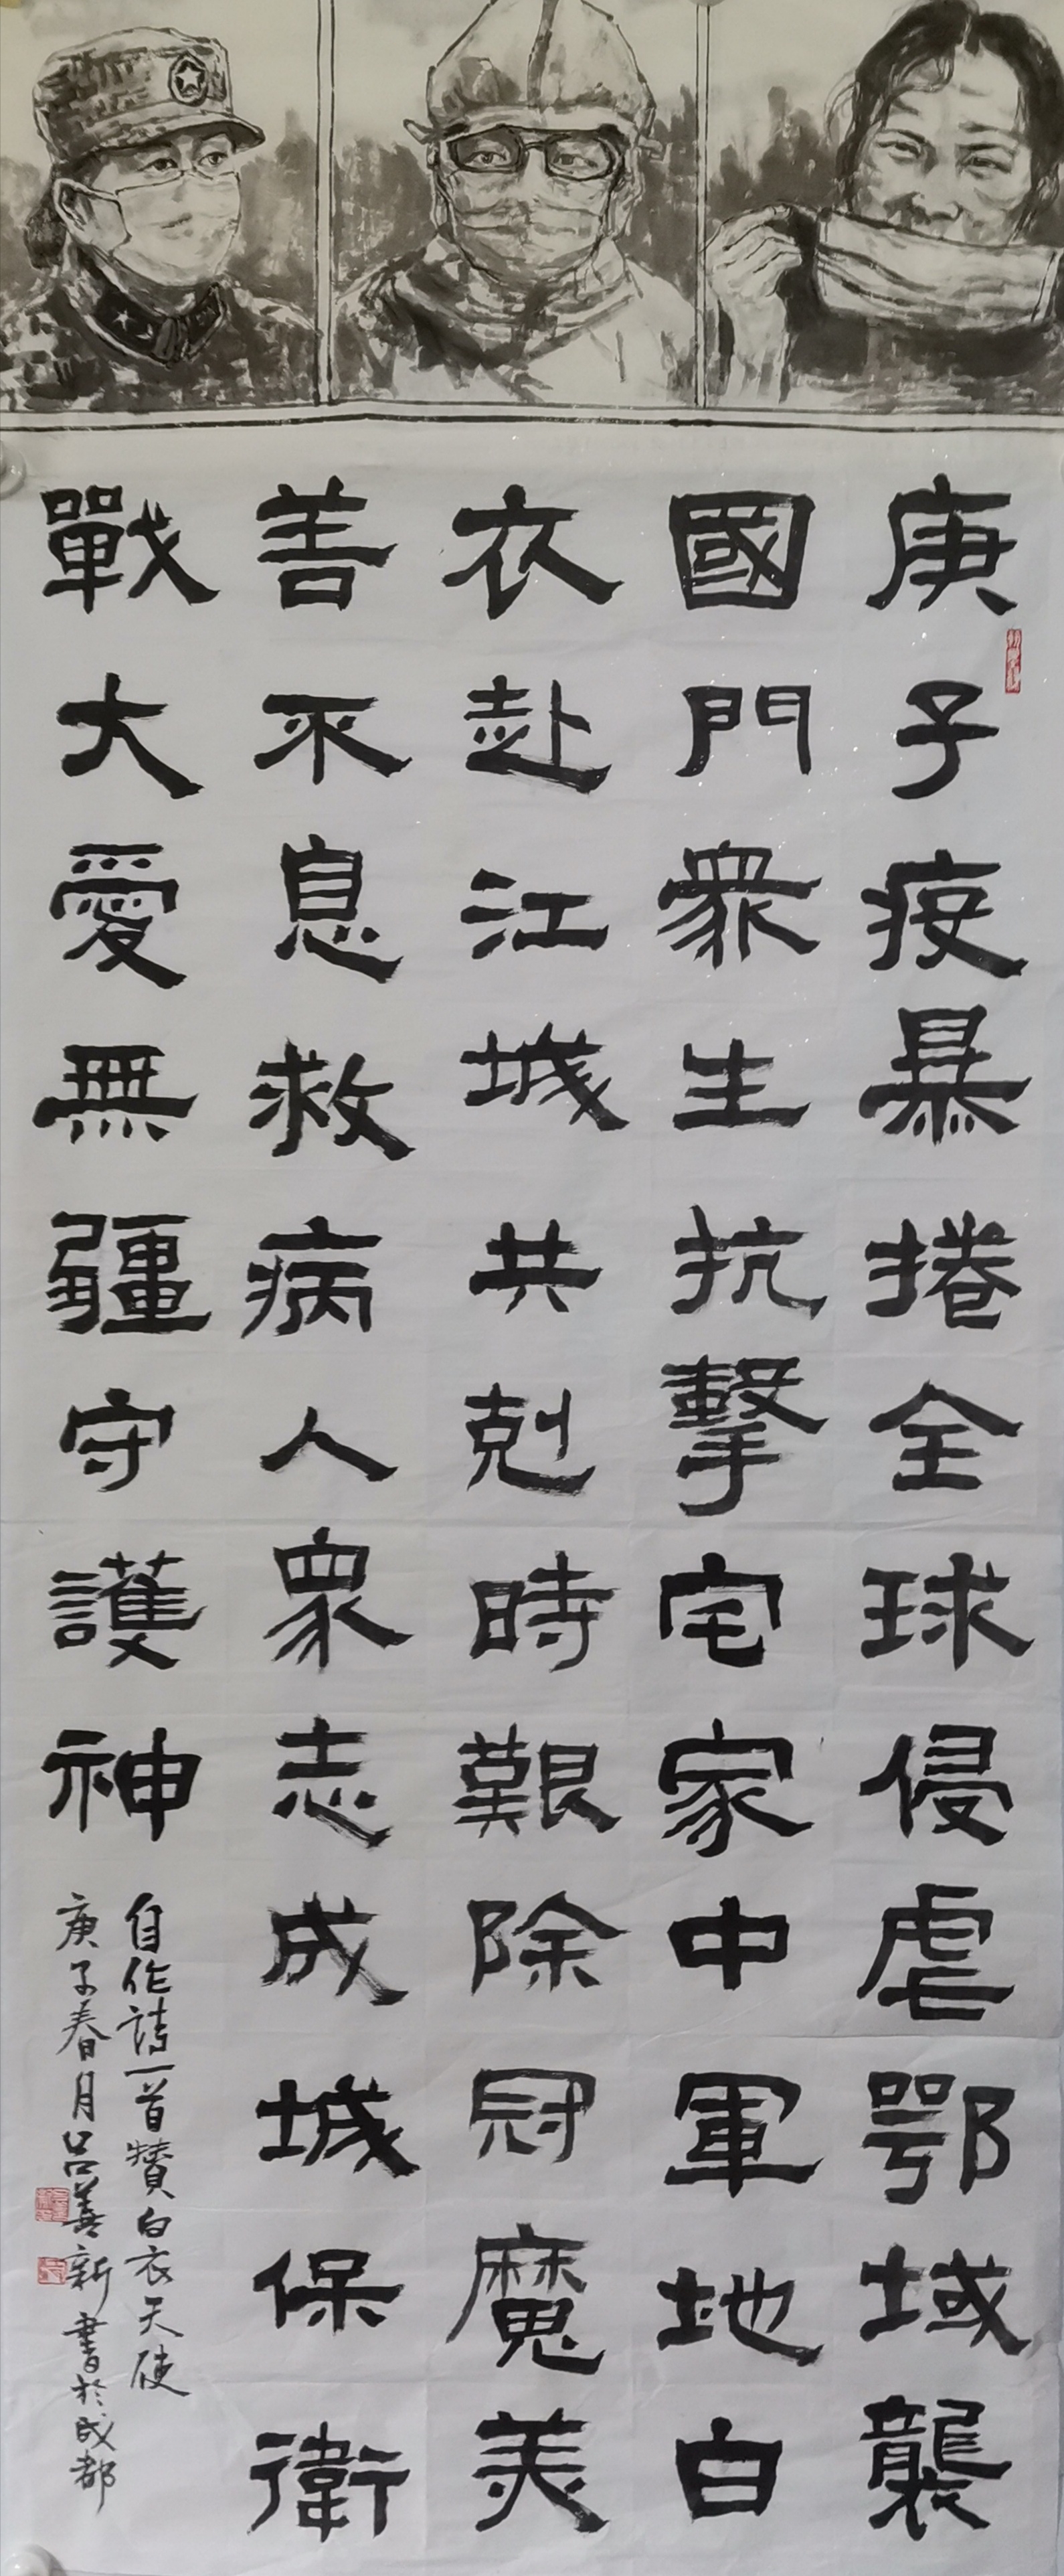 庚子疫暴捲全球侵虐鄂域襲
國門衆生抗擊宅家中軍地白
衣赴江城共剋時艱除冠魔美
善不息救病人眾志成城保衛
戰大愛無疆守護神
自作詩一首贊白衣天使
庚子春月呂善新書於成都